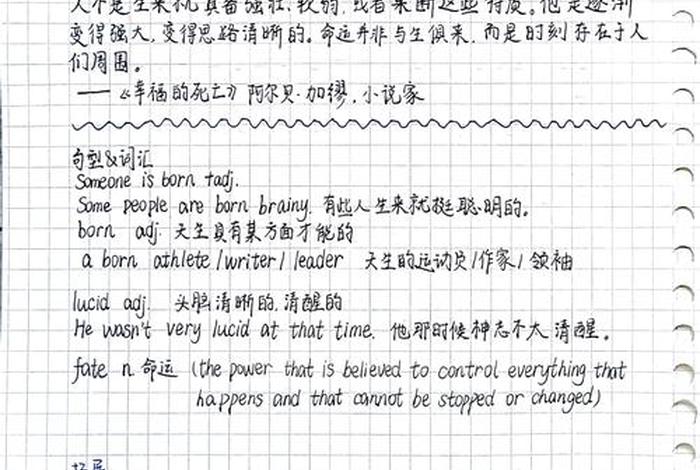 人不是生来就具备强壮、软弱,或者果断这些特质。他是逐渐
变得强大,变得思路清晰的。命运并非与生俱来,而是时刻存在于人
们周围。
——《幸福的死亡》阿尔贝·加缪,小说家
句型&词汇
Someone is born +adj.
Some people are born brainy. 有些人生来就挺聪明的。
born adj. 天生具有某方面才能的
a born athlete/writer/leader 天生的运动员/作家/领袖
lucid adj. 头脑清晰的,清醒的
He wasn't very lucid at that time. 他那时候神志不大清醒。
fate n. 命运 (the power that is believed to control everything that
happens and that cannot be stopped or changed)